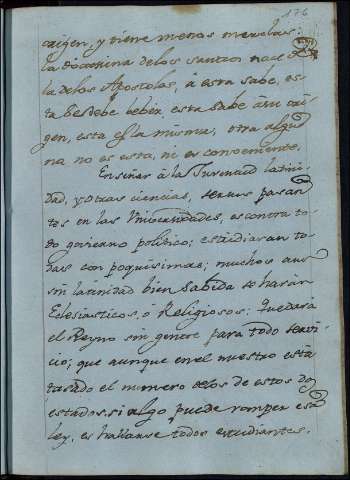 176
origen, y tiene menos mezclas:
la doctrina delos santos nace de
la delos Apostoles, á esta sabe, es-
ta sedebe beber, esta sabe á su ori-
gen, esta es la misma, otra algu-
na no es esta, ni es conveniente.
Enseñar á la Juventud latini-
dad, y otras ciencias, ser sus pasan-
tes en las Universidades, es contra to-
do govierno politico; estudiaran to-
dos con poquisimas; muchos aun
sin latinidad bien sabida se harán
Eclesiasticos, o Religiosos: Quedará
el Reyno sin gente para todo servi-
cio; que aunque en el nuestro está
tasado el numero delos de estos dos
estados, si algo puede romper esa
ley, es hallarse todos estudiantes.